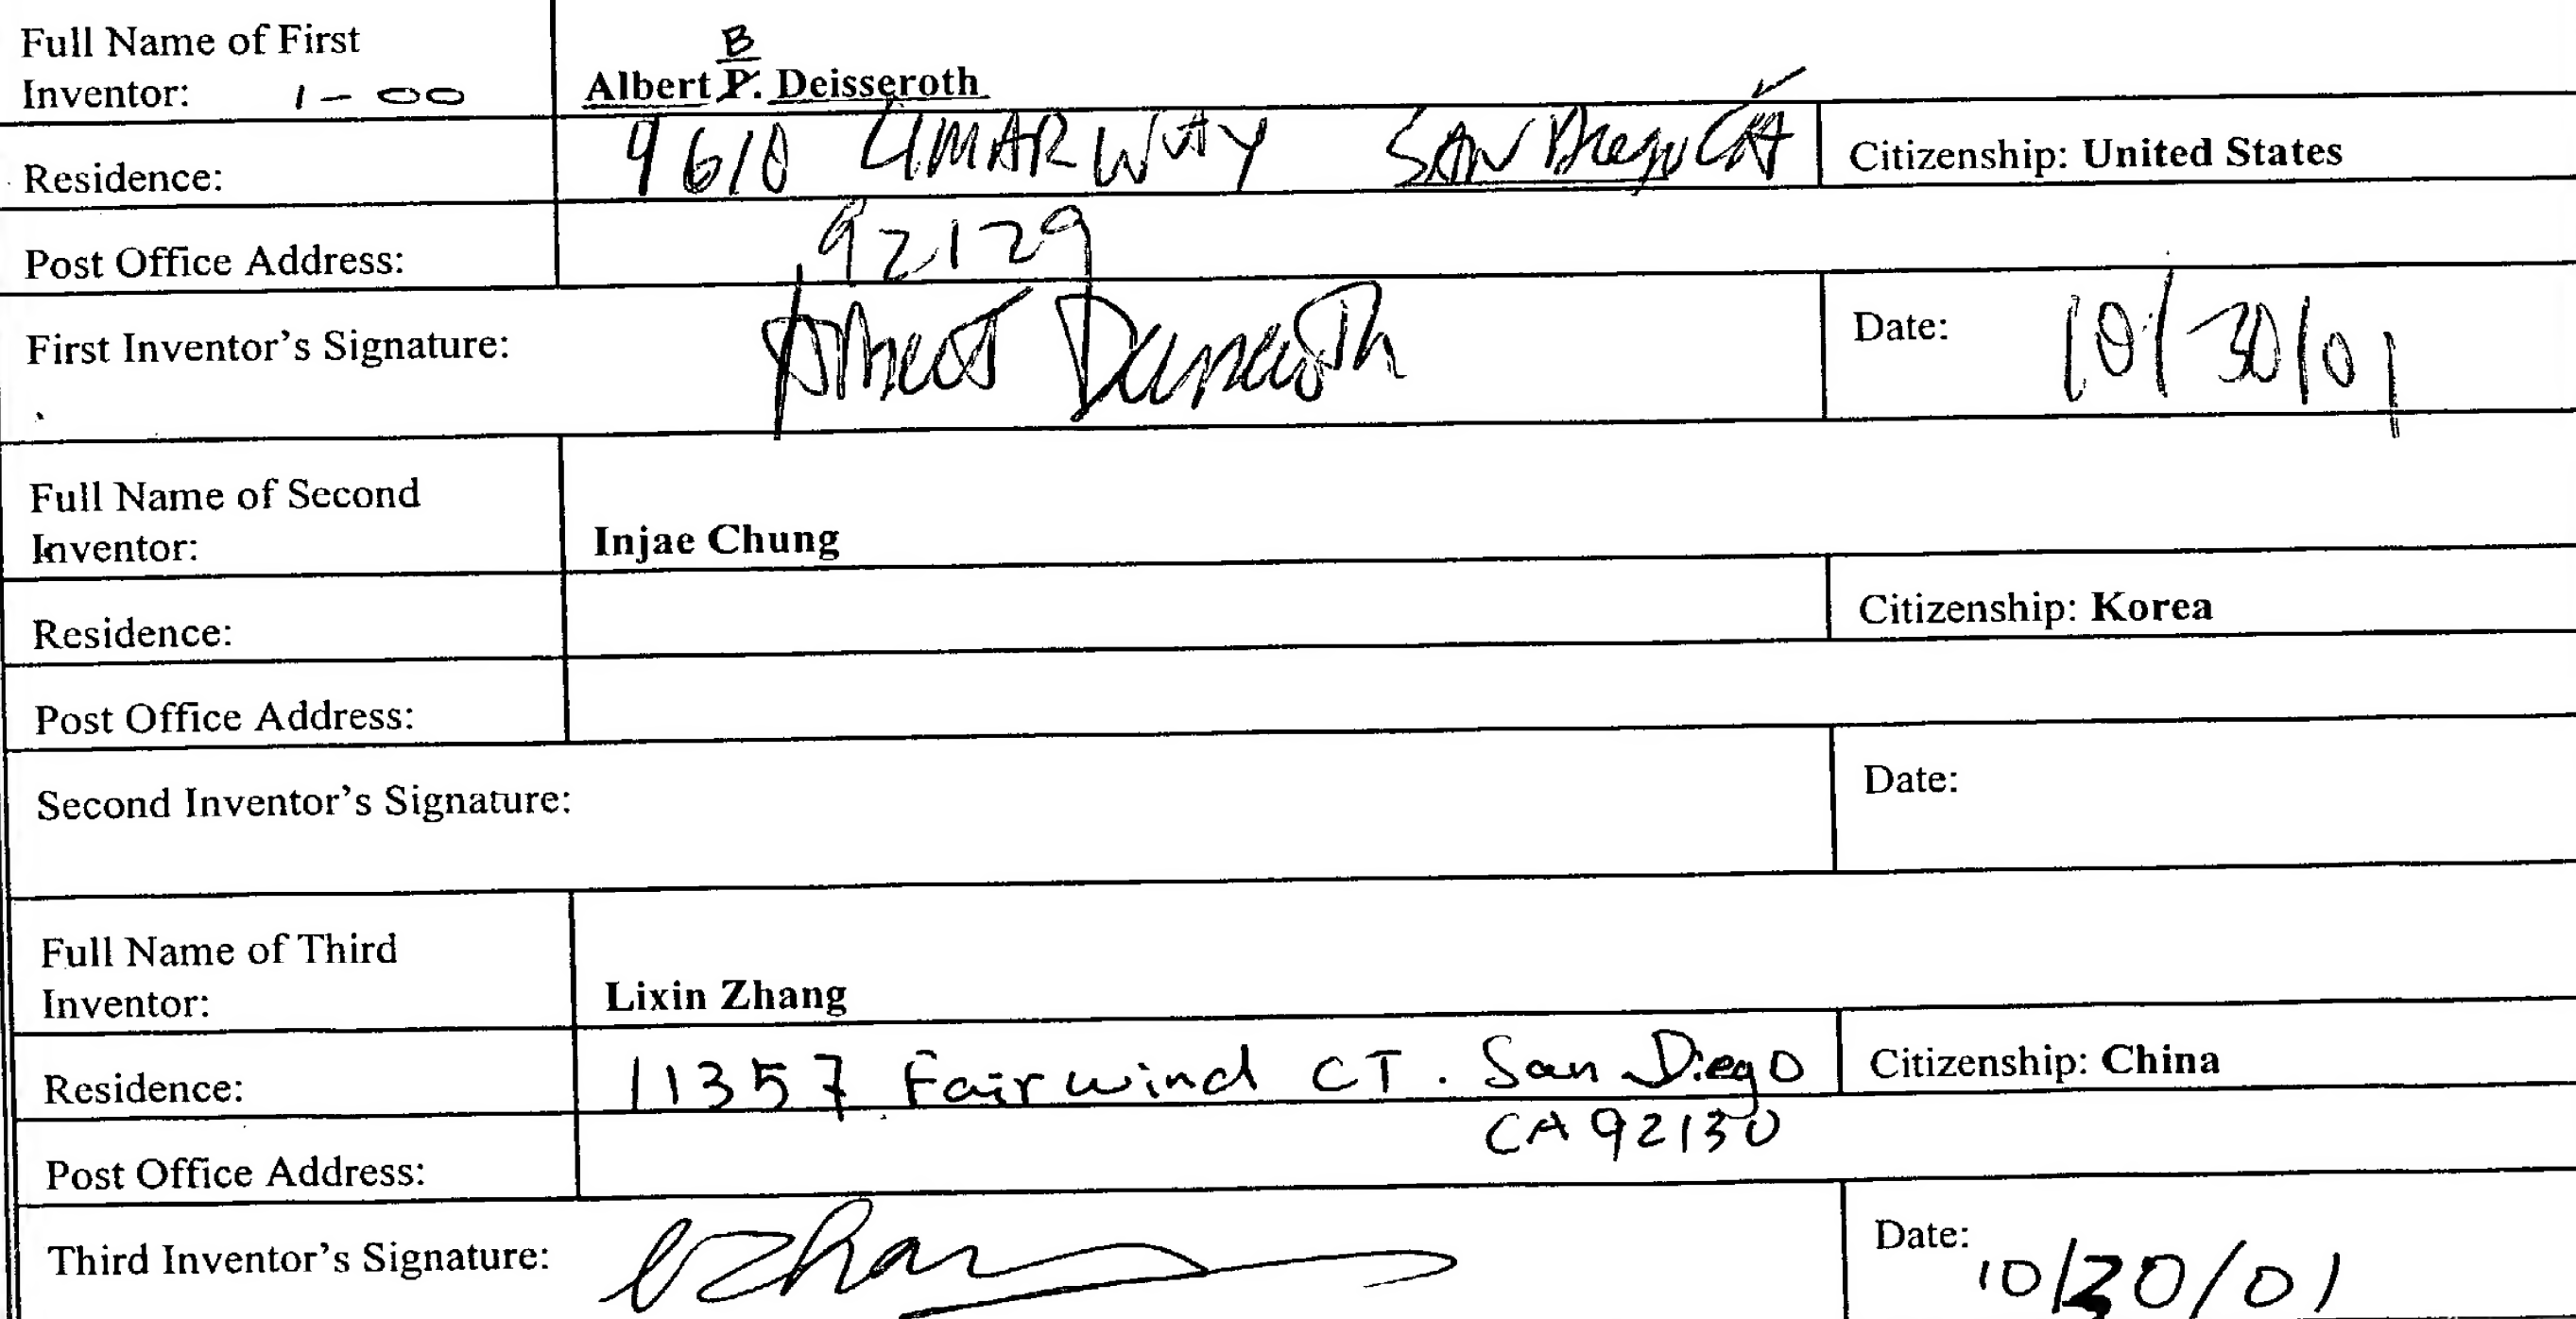 Full Name of First
Inventor: 1-00
B
Albert P. Deisseroth
Residence: 9610 LIMAR WAY SAN Diego CA Citizenship: United States
Post Office Address: 92129
First Inventor's Signature: Albert Deisseroth Date: 10/30/01
Full Name of Second
Inventor: Injae Chung
Residence: Citizenship: Korea
Post Office Address:
Second Inventor's Signature: Date:
Full Name of Third
Inventor: Lixin Zhang
Residence: 11357 Fairwind CT. San Diego Citizenship: China
CA 92130
Post Office Address:
Third Inventor's Signature: Date: